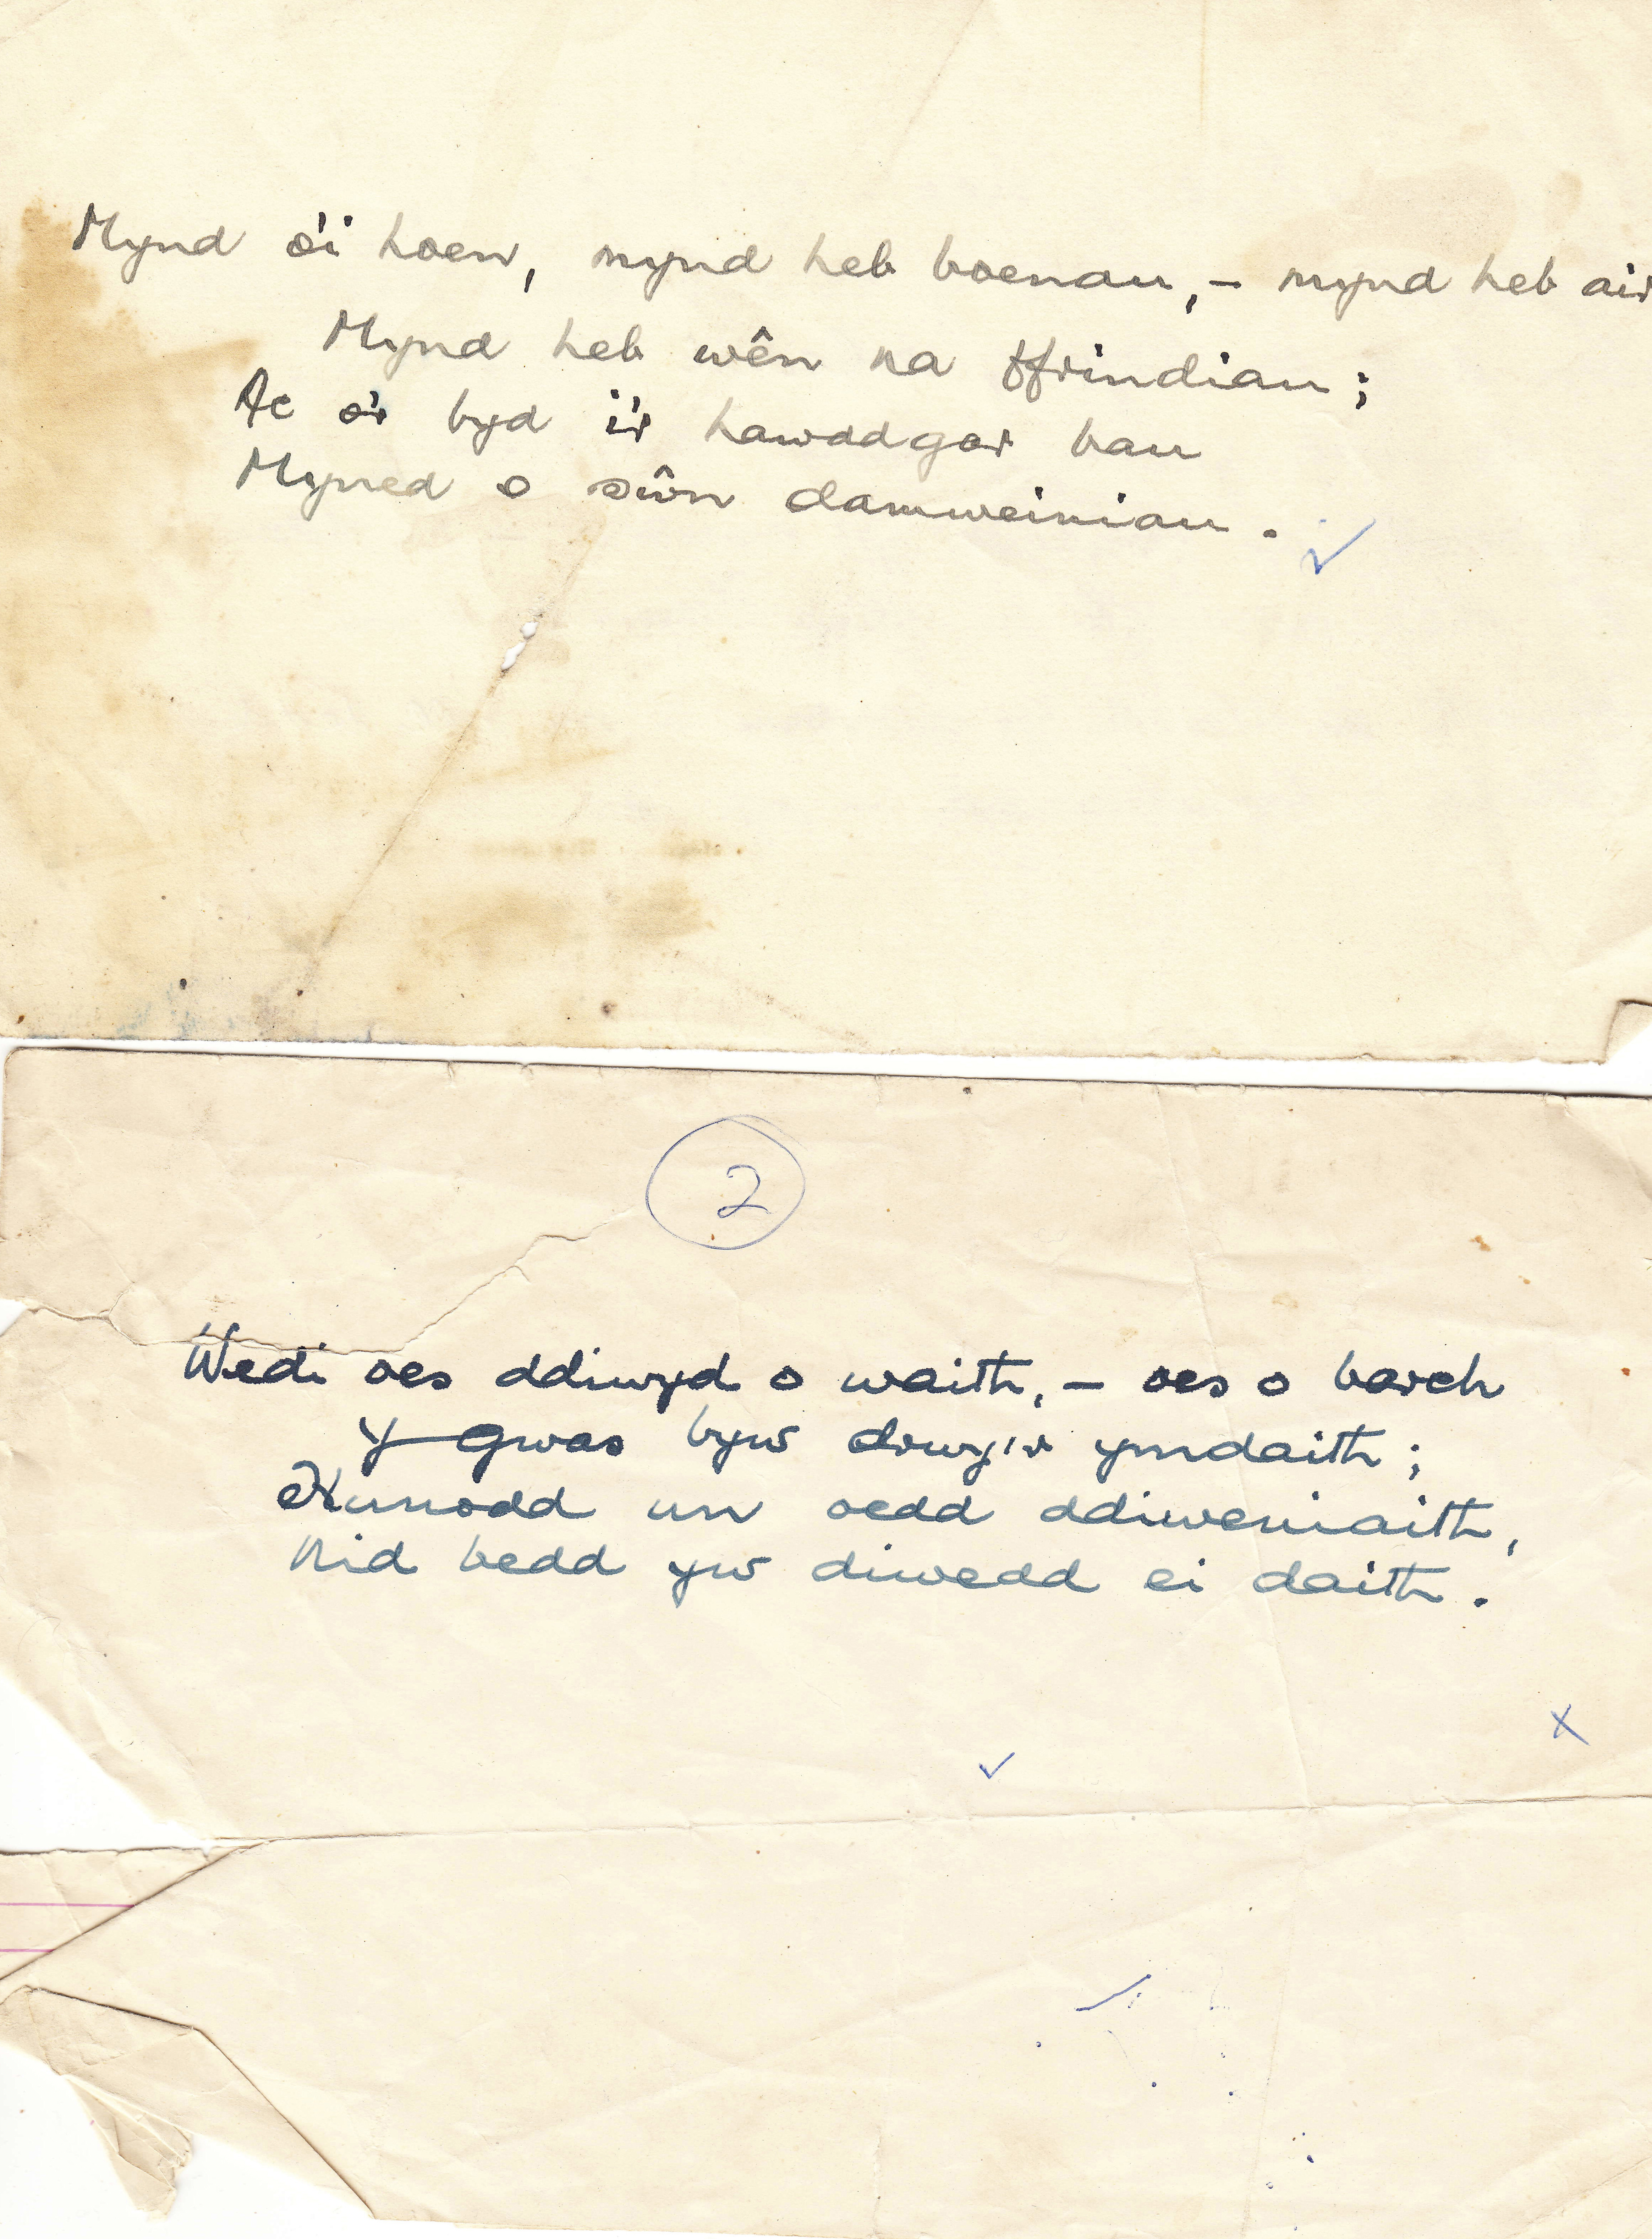 Mynd o'i hoen, mynd heb boenau, – mynd heb air
Mynd heb wên na ffrindiau;
Ac o'r byd i'r hawddgar bau
Myned o sŵn damweiniau.
2
Wedi oes ddiwyd o waith, – oes o barch
Y gwas byw drwy'r ymdaith;
Hunodd un oedd ddiweniaith,
Nid bedd yw diwedd ei daith.